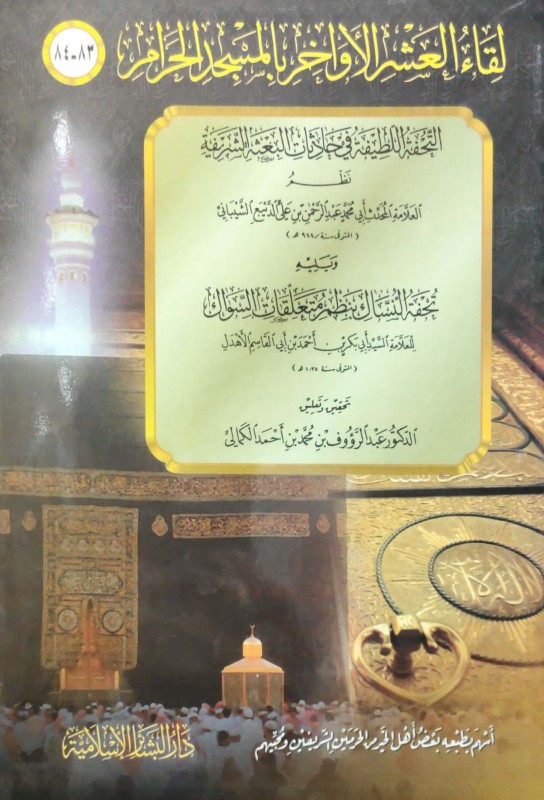 لقاء العشر الأواخر بالمسجد الحرام
٨٣-٨٤
التحفة اللطيفة في حادثات البعثة الشريفة
نظم
العلامة المحدث أبي محمد عبد الرحمن بن علي الديبع الشيباني
(المتوفى سنة ٩٤٤ هـ)
ويليه
تحفة النساك بنظم متعلقات السواك
للعلامة السيد أبي بكر بن أحمد بن أبي القاسم الأهدل
(المتوفى سنة ١٠٣٥ هـ)
تحقيق وتعليق
الدكتور عبد الرؤوف بن محمد بن أحمد الكمالي
أسهم بطبعه بعض أهل الخير من الحرمين الشريفين ومحبيهم
دار البشائر الإسلامية